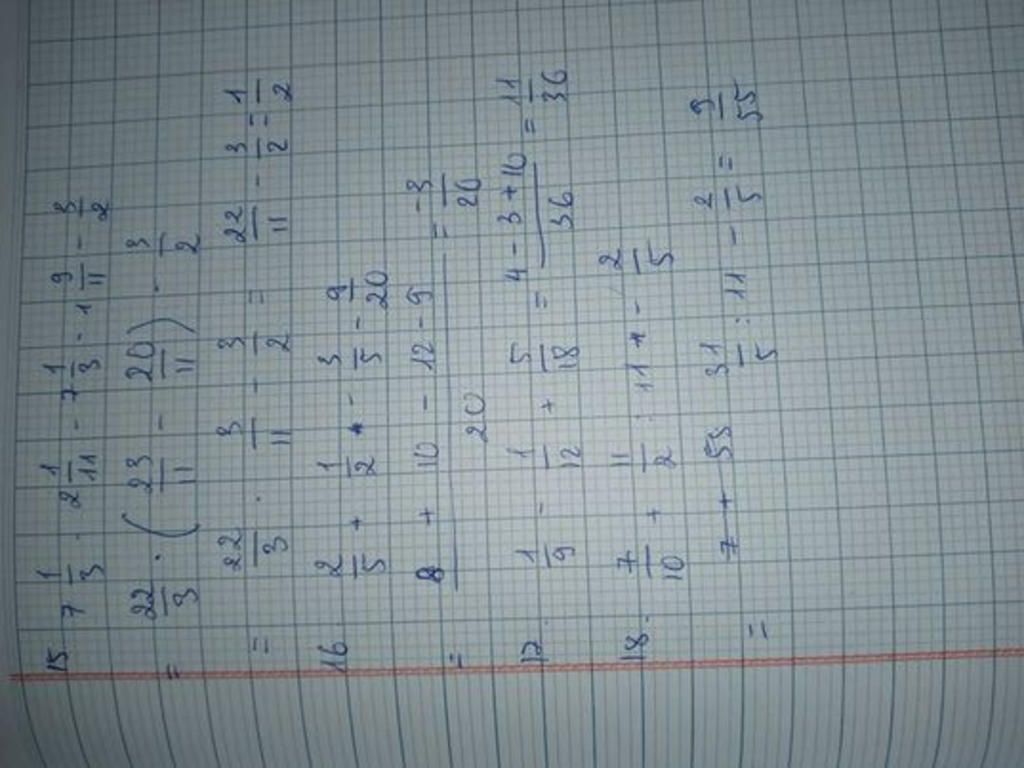 15 7 1/3 · 2 1/11 - 7 1/3 · 1 9/11 - 3/2
= 22/3 · ( 23/11 - 20/11 ) - 3/2
= 22/3 · 3/11 - 3/2 = 22/11 - 3/2 = 1/2
16 2/5 + 1/2 - 3/5 - 9/20
= 8 + 10 - 12 - 9 / 20 = -3/20
17. 1/9 - 1/12 + 5/18 = 4 - 3 + 10 / 36 = 11/36
18. 7/10 + 11/2 : 11 - 2/5
= 7 + 55 31/5 : 11 - 2/5 = 9/55